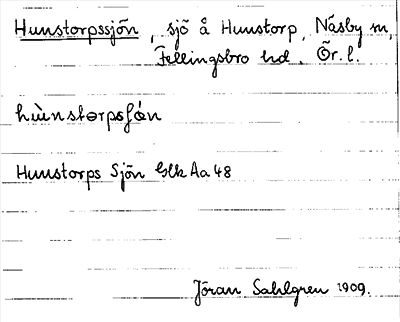 Hunstorpssjön, sjö å Hunstorp, Näsby sn,
Fellingsbro hd. Ör. l.
Hunstorps Sjön Glk Aa 48
Jöran Sahlgren 1909.